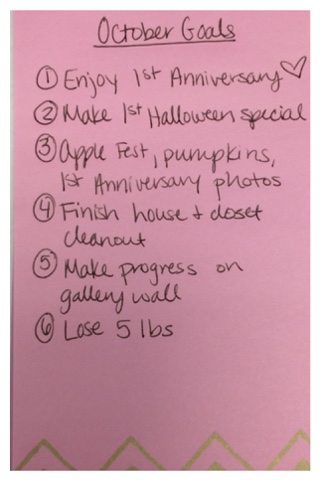 October Goals
① Enjoy 1st Anniversary ♡
② Make 1st Halloween special
③ Apple Fest, pumpkins,
1st Anniversary photos
④ Finish house + closet
cleanout
⑤ Make progress on
gallery wall
⑥ Lose 5 lbs